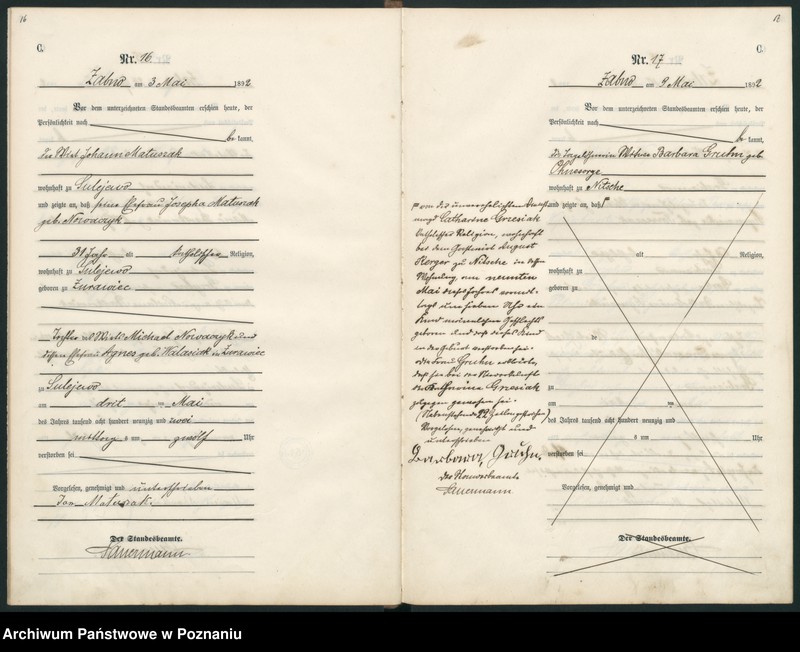 16
C.
Nr. 16.
Zabno am 3 Mai 1892
Vor dem unterzeichneten Standesbeamten erschien heute, der
Persönlichkeit nach
be kannt,
der Wirt Johann Matuszak
wohnhaft zu Sulejewo
und zeigte an, daß seine Ehefrau Josepha Matuszak
geb. Nowaczyk
Jahr alt katholischer Religion,
wohnhaft zu Sulejewo
geboren zu Zurawiec
Tochter des Wirts Michael Nowaczyk und
dessen Ehefrau Agnes geb. Walasiak in Zurawiec
zu Sulejewo
am drit ten Mai
des Jahres tausend acht hundert neunzig und zwei
mittags um zwölf Uhr
verstorben sei
Vorgelesen, genehmigt und unterschrieben
Jan Matuszak.
Der Standesbeamte.
Sauermann
17
C.
Nr. 17.
Zabno am 9 Mai 1892
Vor dem unterzeichneten Standesbeamten erschien heute, der
Persönlichkeit nach
be kannt,
die Witwe Barbara Gruhn geb.
Ohnesorge
wohnhaft zu Nitsche
und zeigte an, daß
alt Religion,
wohnhaft zu
geboren zu
de
zu
am ten
des Jahres tausend acht hundert neunzig und
um Uhr
verstorben sei
Vorgelesen, genehmigt und
Der Standesbeamte.
von der unverehelichten
Catharina Grzesiak
katholischer Religion, wohnhaft
bei dem Gastwirt August
Rorger zu Nitsche in dessen
Wohnung am neunten
Mai dieses Jahres
um sieben Uhr ein
Kind männlichen Geschlechts
geboren und daß dieses Kind
in der Geburt verstorben sei.
die Frau Gruhn erklärte,
daß sie bei der Niederkunft
der Catharina Grzesiak
zugegen gewesen sei.
(Nebenstehende 22 Zeilen gestrichen)
Vorgelesen, genehmigt und
unterschrieben
Barbara Gruhn.
der Standesbeamte
Sauermann
Archiwum Państwowe w Poznaniu